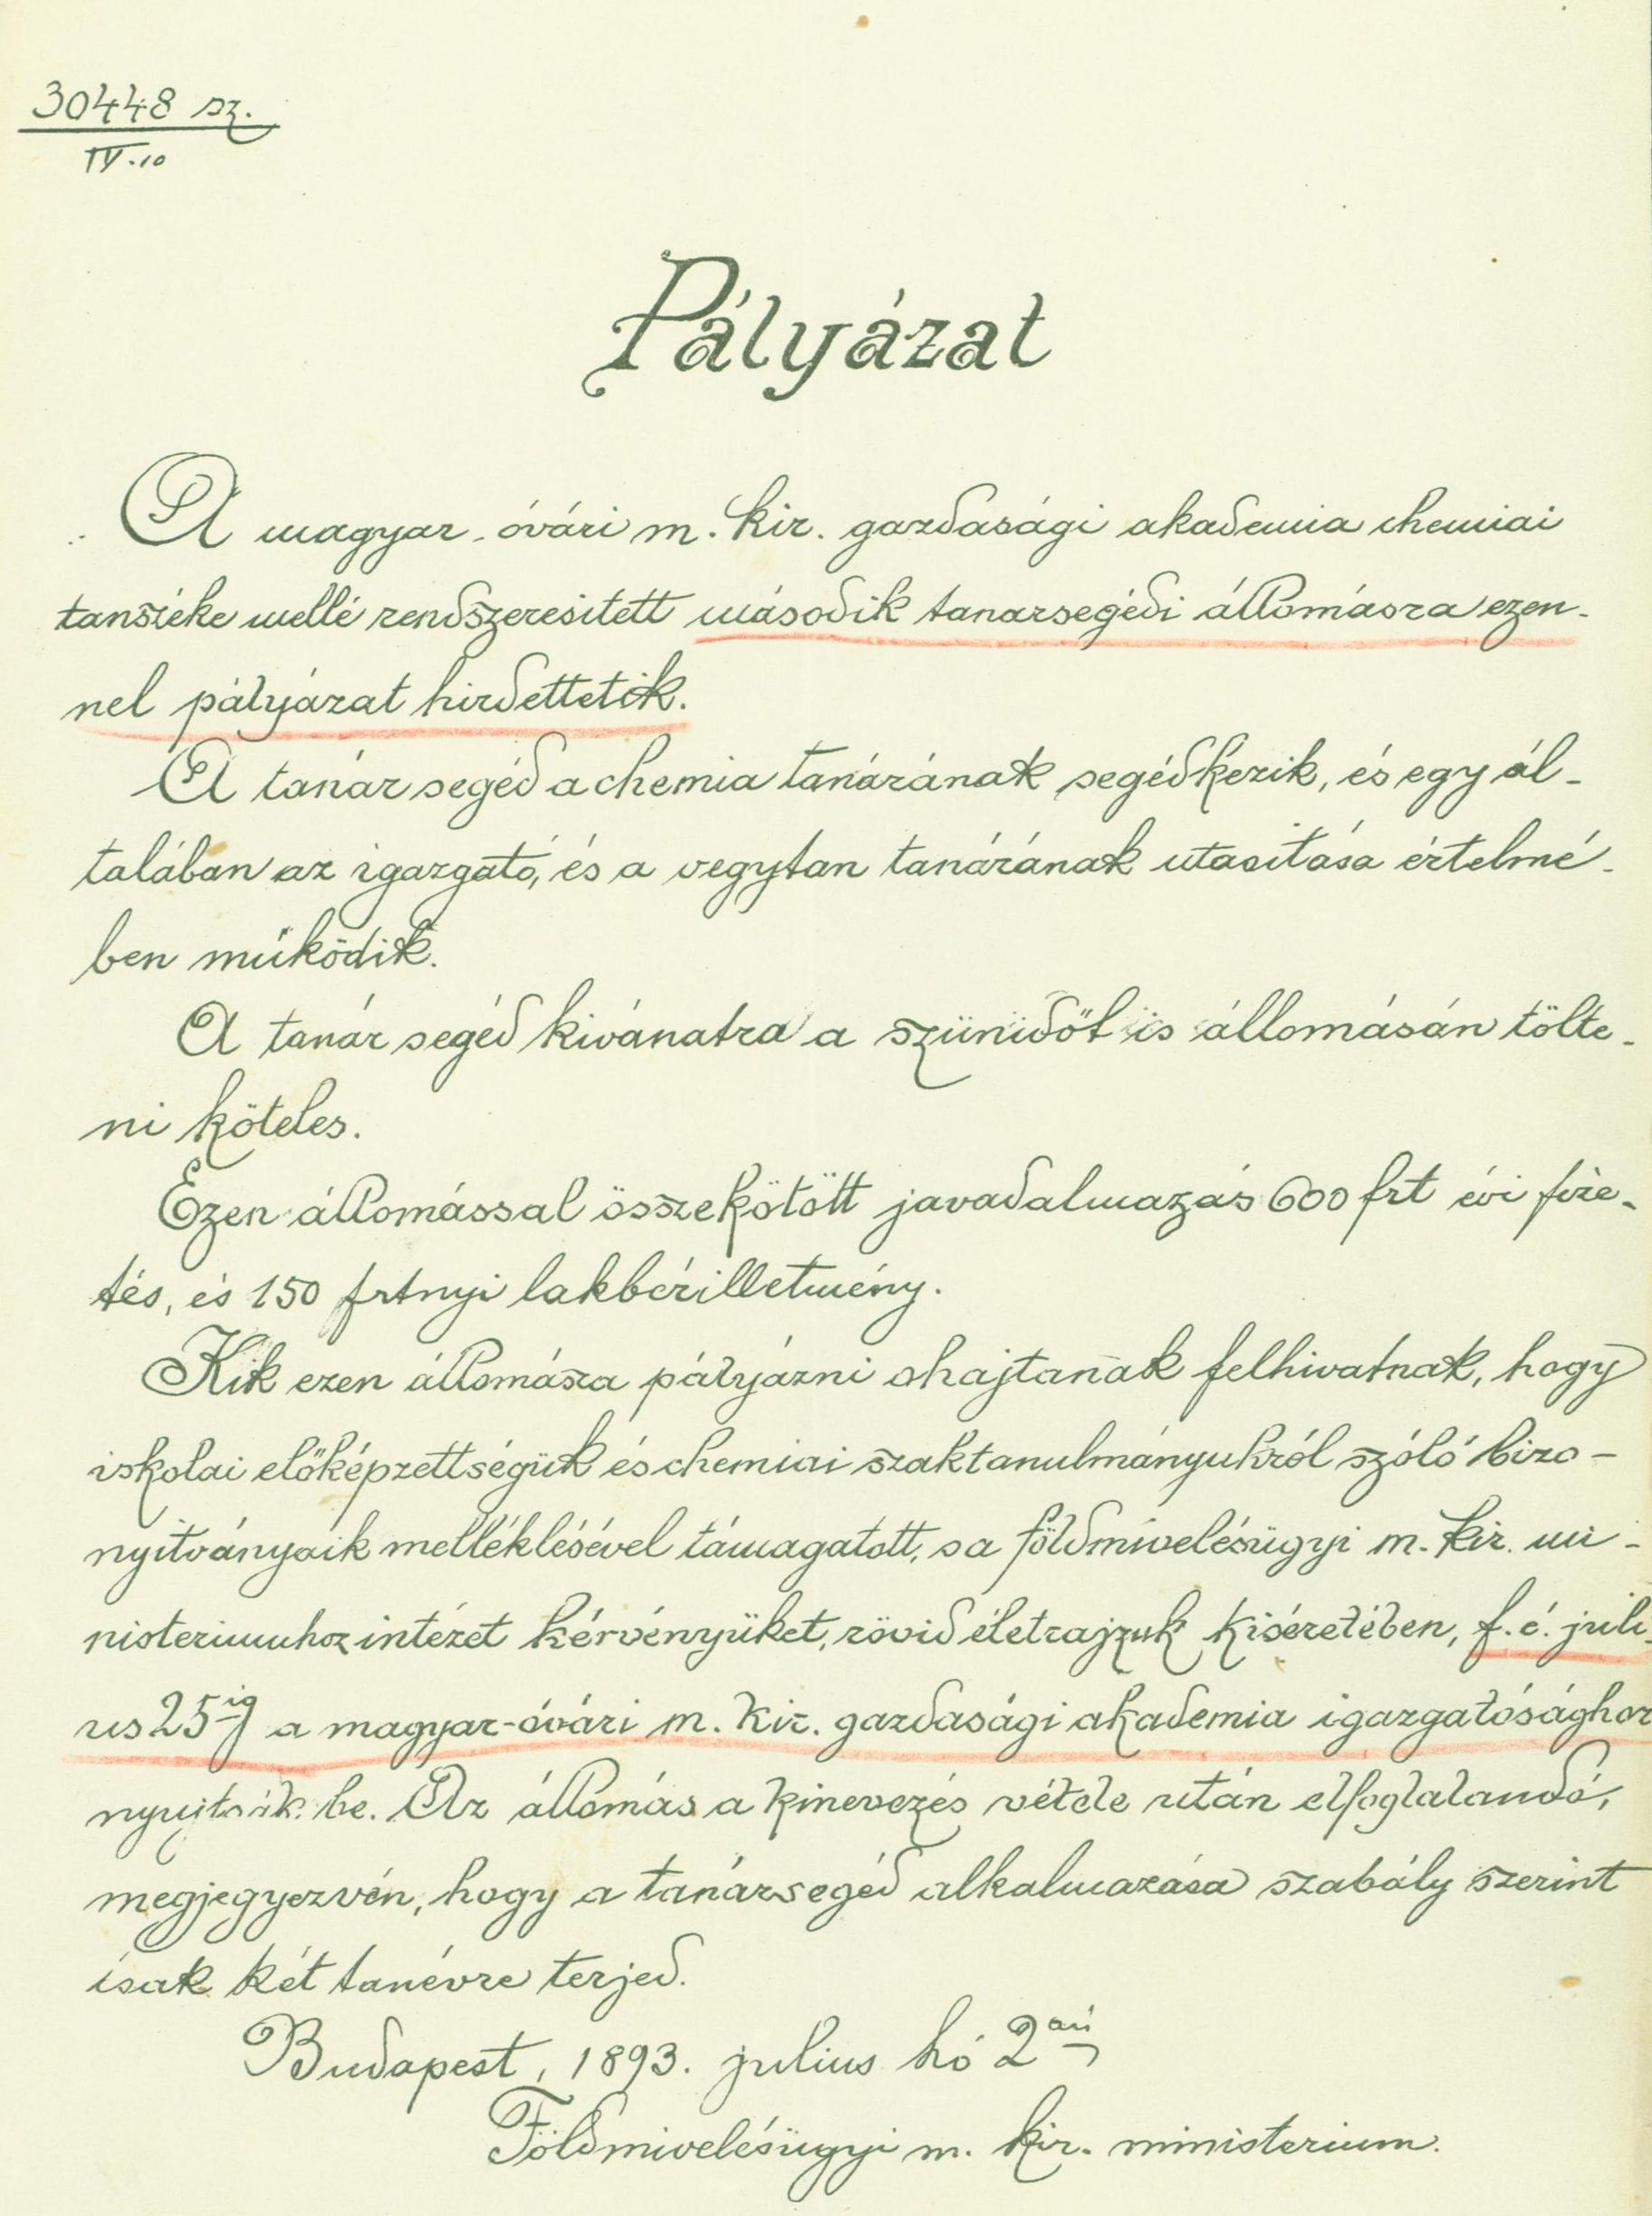 30448 sz.
IV.10
Pályázat
A magyar-óvári m. kir. gazdasági akademia chemiai
tanszéke mellé rendszeresitett második tanarsegédi állomásra ezen-
nel pályázat hirdettetik.
A tanár segéd a chemia tanárának segédkezik, és egy ál-
talában az igazgató, és a vegytan tanárának utasitása értelmé-
ben müködik.
A tanár segéd kivánatra a szünidőt is állomásán tölte-
ni köteles.
Ezen állomással összekötött javadalmazás 600 frt évi fize-
tés, és 150 frtnyi lakbérilletmény.
Kik ezen állomásra pályázni ohajtanak felhivatnak, hogy
iskolai előképzettségük és chemiai szaktanulmányukról szóló bizo-
nyitványaik melléklésével támagatott, s a földmivelésügyi m. kir. mi-
nisteriumhoz intézet kérvényüket, rövid életrajzuk kiséretében, f. é. juli-
us 25ig a magyar-óvári m. kir. gazdasági akademia igazgatósághoz
nyujtsák be. Az állomás a kinevezés vétele után elfoglalandó,
megjegyezvén, hogy a tanársegéd alkalmazása szabály szerint
csak két tanévre terjed.
Budapest, 1893. július hó 2án
Földmivelésügyi m. kir. ministerium.